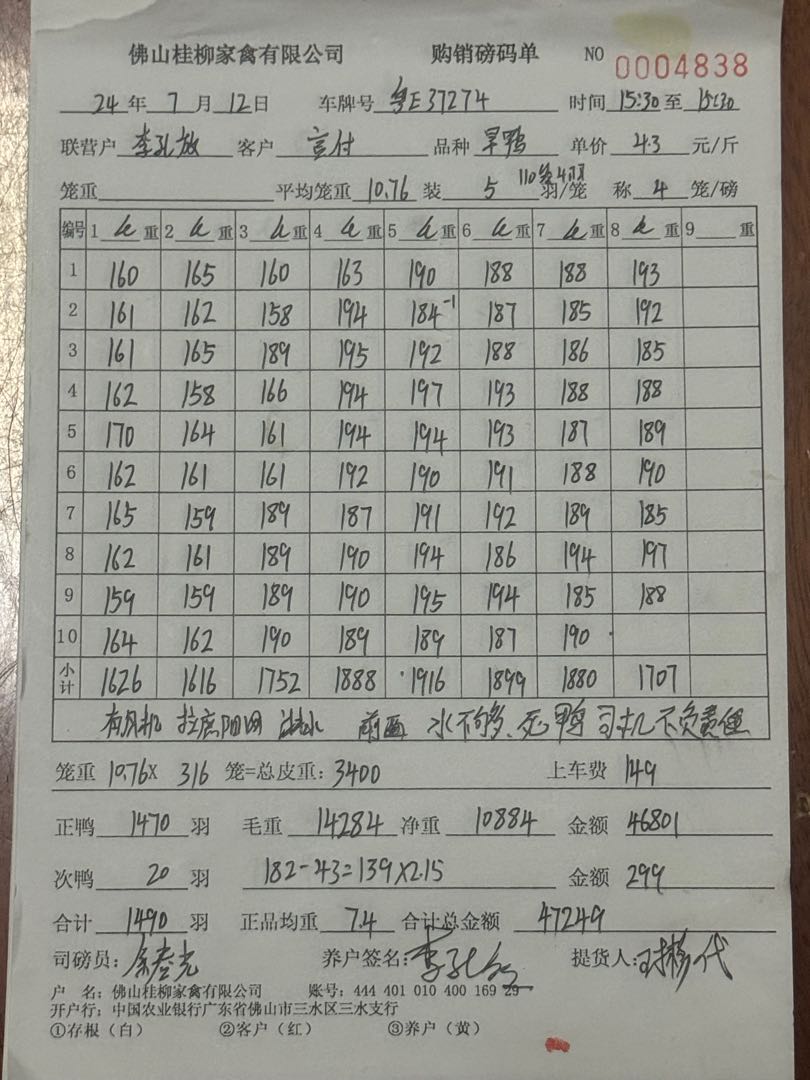 佛山桂柳家禽有限公司 购销磅码单 NO 0004838
24年7月12日 车牌号 粤E37274 时间15:30至15:30
联营户 李孔放 客户 品种 旱鸭 单价 4.3 元/斤
笼重 平均笼重 10.76 装 5 羽/笼 称 4 笼/磅
编号 1 重 2 重 3 重 4 重 5 重 6 重 7 重 8 重 9 重
1 160 165 160 163 190 188 188 193
2 161 162 158 194 184-1 187 185 192
3 161 165 189 195 192 188 186 185
4 162 158 166 194 197 193 188 188
5 170 164 161 194 194 193 187 189
6 162 161 161 192 190 191 188 190
7 165 159 189 187 191 192 189 185
8 162 161 189 190 194 186 194 197
9 159 159 189 190 195 194 185 188
10 164 162 190 189 189 187 190
小计 1626 1616 1752 1888 1916 1899 1880 1707
有风机 拉遮阳网 水不够、死鸭司机不负责任
笼重 10.76X 316 笼=总皮重：3400 上车费 149
正鸭 1470 羽 毛重 14284 净重 10884 金额 46801
次鸭 20 羽 182-43=139X2.15 金额 299
合计 1490 羽 正品均重 7.4 合计总金额 47249
司磅员： 养户签名： 提货人：
户 名：佛山桂柳家禽有限公司 账号：444 401 010 400 169 29
开户行：中国农业银行广东省佛山市三水区三水支行
①存根（白） ②客户（红） ③养户（黄）